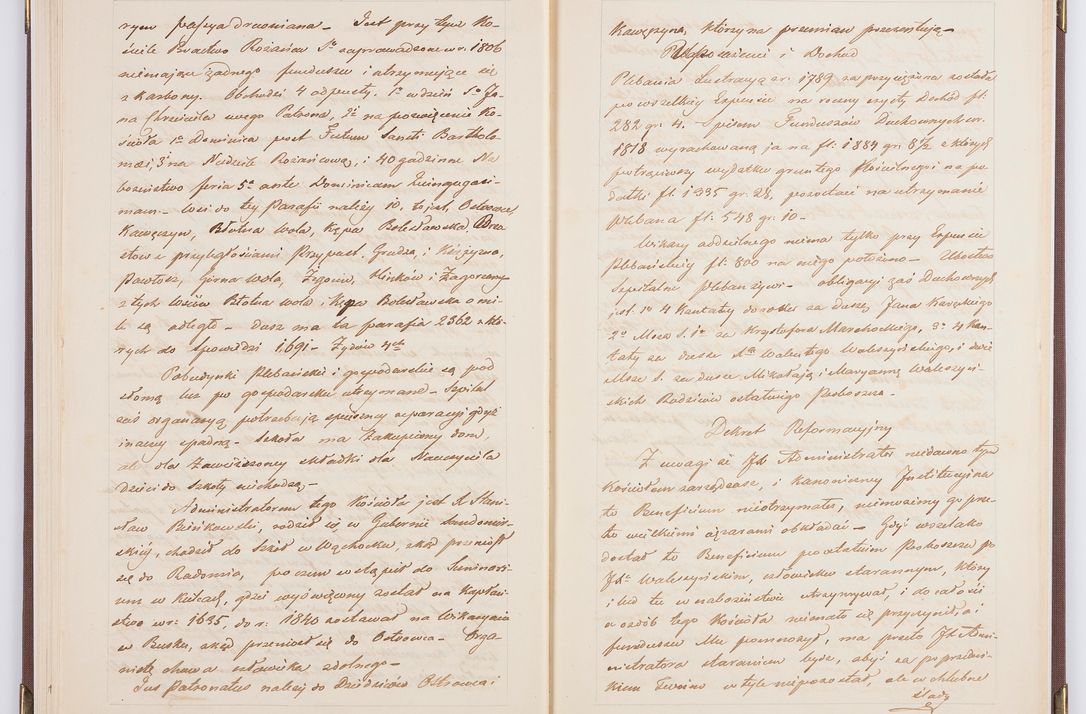 rym passya drewniana – Jest przy tym Ko-
ściele Bractwo Rożańca S° zaprowadzone w r: 1806
niemające żadnego funduszu i utrzymujące się
z Karbony. Obchodzi 4 odpusty. 1° w dzień S° Ja-
na Chrzciciela swego Patrona, 2° na poświęcenie Ko-
ścioła 1ª Dominica post Festum Sancti Bartholo-
maei, 3 na Niedzielę Rożańcową, i 40 godzinne Na-
bożeństwo feria 5ª ante Dominicam Quinquagesi-
mam – Wsi do tey Parafii należy 10. to jest,
Kawęczyn, Błotna Wola, Kępa Bolesławska,
stów z przyległościami Przypust, Grudza, i
Pawłosz, Górna Wola, Żegocin, Hlinków i Zagorzany
z tych wsiów Błotna wola i Kępa Bolesławska o mi-
lę są odległe – dusz ma ta parafia 2362 z któ-
rych do spowiedzi 1,691 – Żydów 4ch
Pobudynki Plebańskie i gospodarskie są pod
słomą lecz po gospodarsku utrzymane – Szpital
zaś organistą potrzebują spieszney reparacyi gdyż
inaczey spadną – Szkoła ma zakupiony dom,
ale dla zawieszoney składki dla Nauczyciela
dzieci do szkoły niechodzą –
Administratorem tego Kościoła jest X. Stani-
sław Bieńkowski, rodził się w Gubernii Sandomir-
skiey, chodził do Szkół w Wąchocku, zkąd przeniósł
się do Radomia, po czem wstąpił do Seminari-
um w Kielcach, gdzie wyświęcony został na Kapłań-
stwo w r: 1635, do r: 1840 zostawał na Wikaryacie
w Busku, zkąd przeniósł się do Ostrowca – Orga
nistę chowa człowieka zdolnego –
Jus Patronatus należy do Dziedziców Ostrowca i
Kawęczyna, którzy na przemian prezentują –
Posażności i Dochod
Plebania Lustracyą z r: 1789 zaprzysiężona została
po wszelkiey Expensie na roczny czysty dochód fl:
282 gr: 4. Spisem Funduszów Duchownych w r:
1818 wyrachowaną ja na fl: 1884 gr: 8½ z których
potrąciwszy wydatku gruntego Kościelnego i na po-
datki fl: 1335 gr: 28, pozostać na utrzymanie
plebana fl: 548 gr: 10 –
Wikary oddzielnego niema tylko przy Expensie
Plebańskiey fl: 800 na niego położono – Ubostwo
Szpitalne Pleban żywi – obligacyi zaś Duchownych
jest 1° 4 Kantaty do roku za duszę Jana Kawęckiego
2° Msza S. 1ª za Krzysztofa Marchockiego, 3° 4 Kan-
taty za dusze Walentego Waleszyńskiego, i dwie
Msze S. za dusze Mikołaja i Maryanny Waleszyń-
skich Rodziców ostatniego Proboszcza –
Dekret Reformacyjny
Z uwagi że JX Administrator niedawno tym
Kościołem zarządzać, i kanoniczney Institucyi na
to Beneficium nieotrzymał, niemożemy go prze-
to wielkiemi ciężarami obkładać – Gdyż wszelako
dostał to Beneficium po ostatnim Proboszczu po
JX. Waleszyńskim, człowieku starannym, który
i lud tu w nabożeństwie utrzymywał, i do całości
ozdób tego Kościoła niemało się przyczynił, a i
funduszu Mu pomnożył, ma przeto JX Admi-
nistratora staraniem będzie, abyś za poprzedni-
kiem Twoim w tyle niepozostał, ale w chlubne
ślady